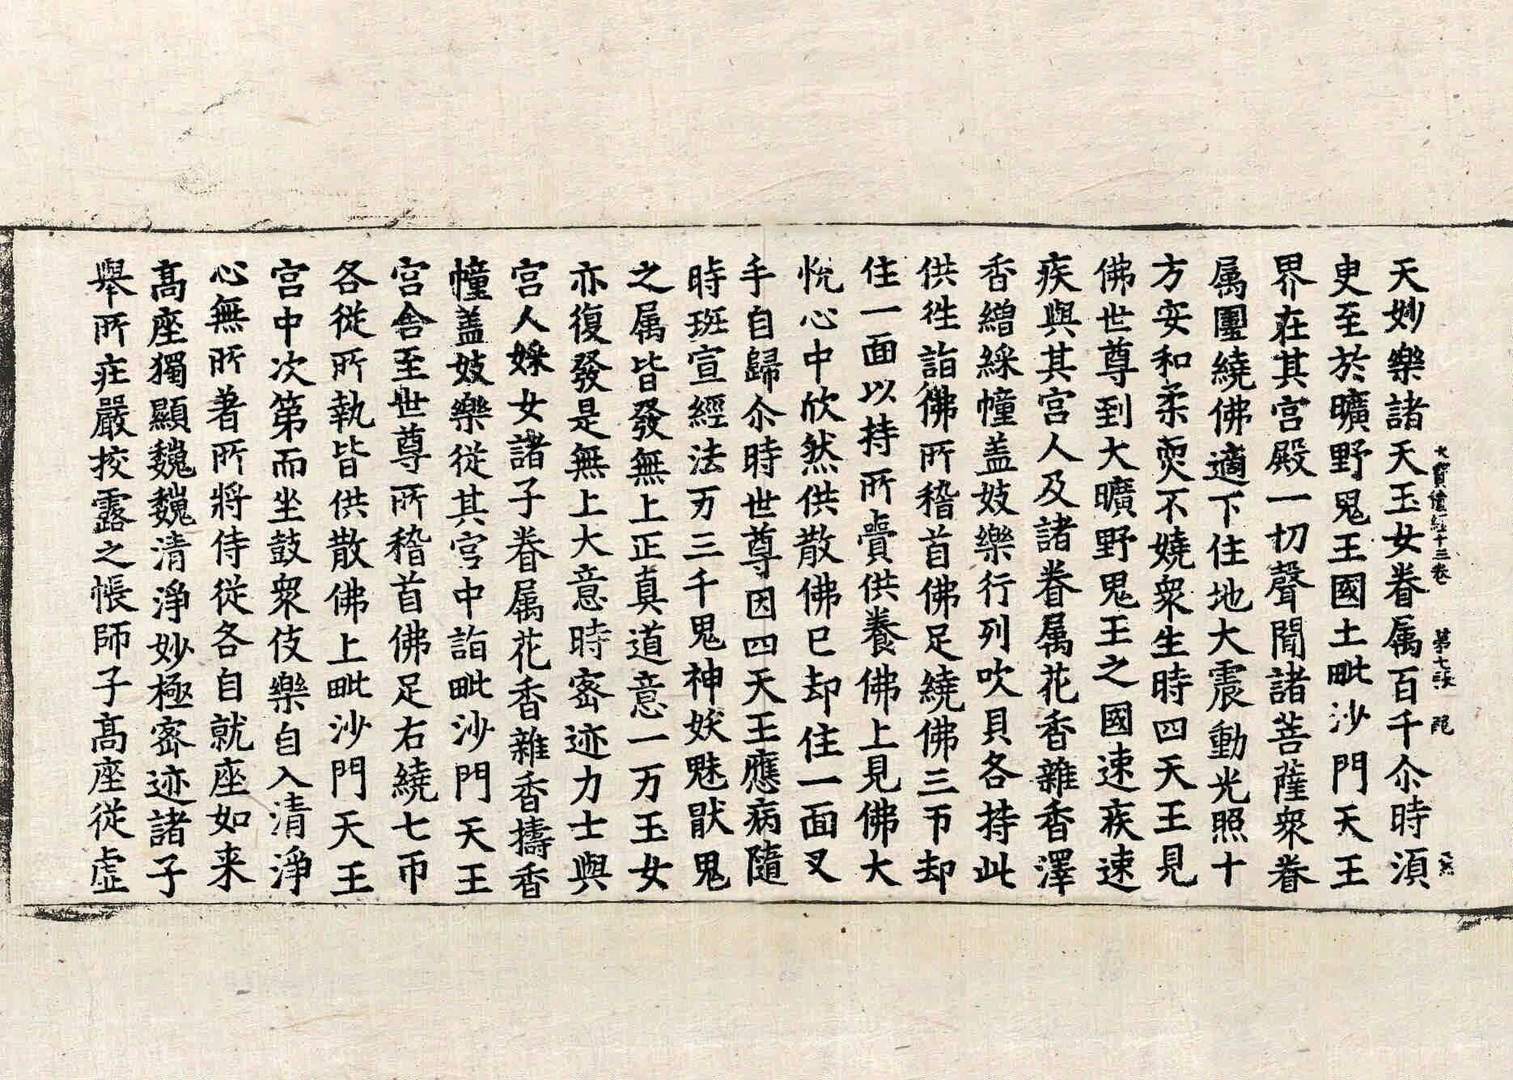 大寶積經十三卷 第七張
天妙樂諸天玉女眷属百千尒時湏
㬰至於曠野鬼王國土毗沙門天王
界在其宮殿一切聲聞諸菩薩衆眷
属圍繞佛適下住地大震動光照十
方安和柔耎不嬈衆生時四天王見
佛世尊到大曠野鬼王之國速疾速
疾與其宮人及諸眷属花香雜香澤
香繒綵幢盖妓樂行列吹貝各持此
供往詣佛所稽首佛足繞佛三帀却
住一面以持所賫供養佛上見佛大
恱心中欣然供散佛已却住一面叉
手自歸尒時世尊因四天王應病隨
時班宣經法万三千鬼神妖魅猒鬼
之属皆發無上正真道意一万玉女
亦復發是無上大意時宻迹力士與
宮人婇女諸子眷属花香雜香擣香
幢盖妓樂從其宮中詣毗沙門天王
宮舎至世尊所稽首佛足右繞七帀
各從所執皆供散佛上毗沙門天王
宮中次第而坐鼓衆伎樂自入清淨
心無所著所將侍從各自就座如来
髙座獨顯巍巍清淨妙極宻迹諸子
舉所莊嚴挍露之帳師子髙座從虚